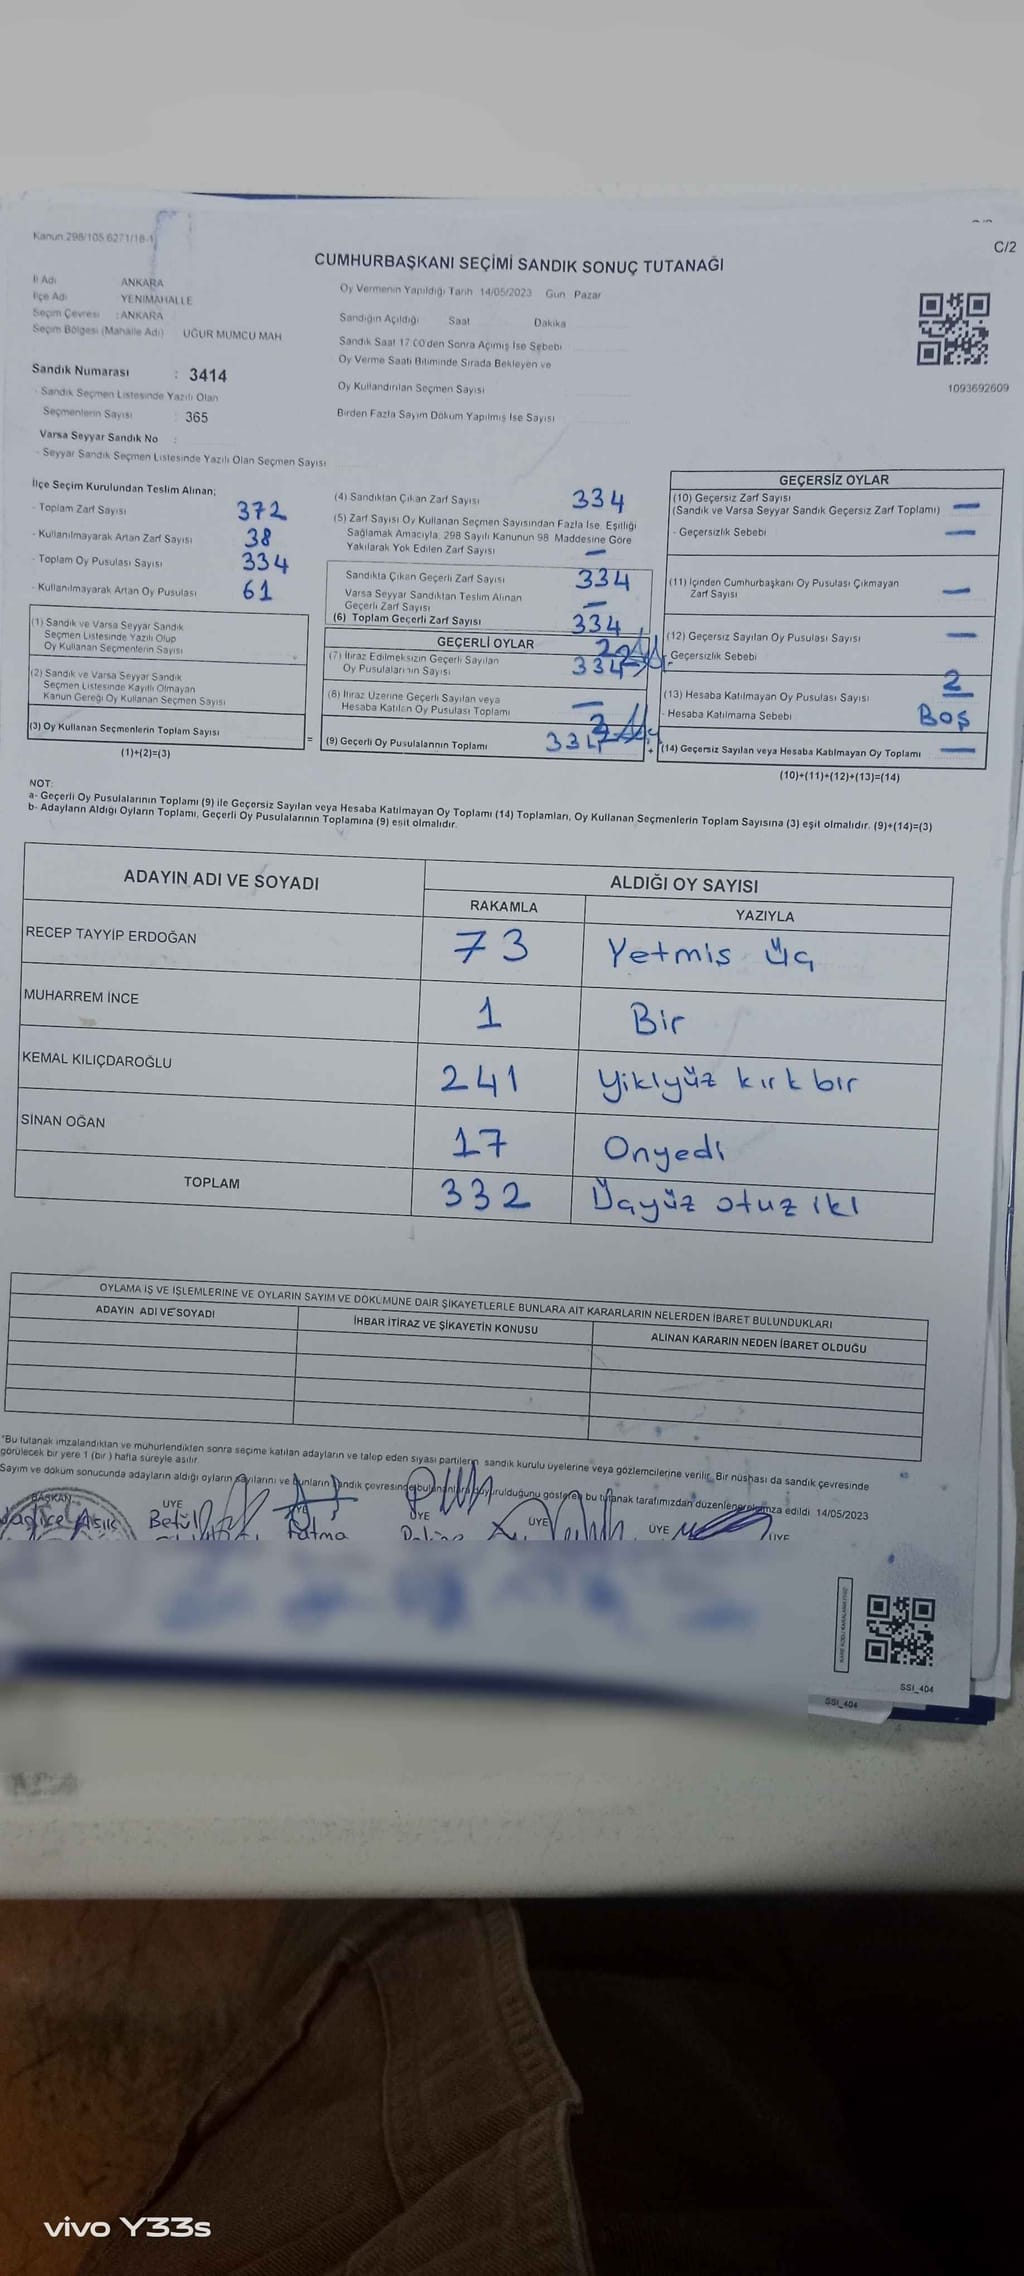 Kanun 298/105 6271/18-1
C/2
CUMHURBAŞKANI SEÇİMİ SANDIK SONUÇ TUTANAĞI
İl Adı ANKARA
İlçe Adı YENİMAHALLE
Seçim Çevresi : ANKARA
Seçim Bölgesi (Mahalle Adı) UĞUR MUMCU MAH
Sandık Numarası : 3414
- Sandık Seçmen Listesinde Yazılı Olan
Seçmenlerin Sayısı : 365
Varsa Seyyar Sandık No :
- Seyyar Sandık Seçmen Listesinde Yazılı Olan Seçmen Sayısı
Oy Vermenin Yapıldığı Tarih 14/05/2023 Gün Pazar
Sandığın Açıldığı Saat Dakika
Sandık Saat 17.00'den Sonra Açımış İse Sebebi
Oy Verme Saati Bitiminde Sırada Bekleyen ve
Oy Kullandırılan Seçmen Sayısı
Birden Fazla Sayım Döküm Yapılmış İse Sayısı
1093692609
İlçe Seçim Kurulundan Teslim Alınan;
- Toplam Zarf Sayısı 372
- Kullanılmayarak Artan Zarf Sayısı 38
- Toplam Oy Pusulası Sayısı 334
- Kullanılmayarak Artan Oy Pusulası 61
(1) Sandık ve Varsa Seyyar Sandık
Seçmen Listesinde Yazılı Olup
Oy Kullanan Seçmenlerin Sayısı
(2) Sandık ve Varsa Seyyar Sandık
Seçmen Listesinde Kayıtlı Olmayan
Kanun Gereği Oy Kullanan Seçmen Sayısı
(3) Oy Kullanan Seçmenlerin Toplam Sayısı
(1)+(2)=(3)
=
(4) Sandıktan Çıkan Zarf Sayısı 334
(5) Zarf Sayısı Oy Kullanan Seçmen Sayısından Fazla İse, Eşitliği
Sağlamak Amacıyla, 298 Sayılı Kanunun 98. Maddesine Göre
Yakılarak Yok Edilen Zarf Sayısı —
Sandıkta Çıkan Geçerli Zarf Sayısı 334
Varsa Seyyar Sandıktan Teslim Alınan
Geçerli Zarf Sayısı —
(6) Toplam Geçerli Zarf Sayısı 334
GEÇERLİ OYLAR
(7) İtiraz Edilmeksizin Geçerli Sayılan
Oy Pusulalarının Sayısı 334
(8) İtiraz Üzerine Geçerli Sayılan veya
Hesaba Katılan Oy Pusulası Toplamı —
(9) Geçerli Oy Pusulalarının Toplamı
+
GEÇERSİZ OYLAR
(10) Geçersiz Zarf Sayısı
(Sandık ve Varsa Seyyar Sandık Geçersiz Zarf Toplamı) —
- Geçersizlik Sebebi —
(11) İçinden Cumhurbaşkanı Oy Pusulası Çıkmayan
Zarf Sayısı —
(12) Geçersiz Sayılan Oy Pusulası Sayısı —
Geçersizlik Sebebi
(13) Hesaba Katılmayan Oy Pusulası Sayısı 2
- Hesaba Katılmama Sebebi Boş
(14) Geçersiz Sayılan veya Hesaba Katılmayan Oy Toplamı —
(10)+(11)+(12)+(13)=(14)
NOT:
a- Geçerli Oy Pusulalarının Toplamı (9) ile Geçersiz Sayılan veya Hesaba Katılmayan Oy Toplamı (14) Toplamları, Oy Kullanan Seçmenlerin Toplam Sayısına (3) eşit olmalıdır. (9)+(14)=(3)
b- Adayların Aldığı Oyların Toplamı, Geçerli Oy Pusulalarının Toplamına (9) eşit olmalıdır.
ADAYIN ADI VE SOYADI ALDIĞI OY SAYISI
RAKAMLA YAZIYLA
RECEP TAYYİP ERDOĞAN 73 Yetmis Üç
MUHARREM İNCE 1 Bir
KEMAL KILIÇDAROĞLU 241 Yikiyüz kırk bir
SİNAN OĞAN 17 Onyedi
TOPLAM 332 Üçyüz otuz iki
OYLAMA İŞ VE İŞLEMLERİNE VE OYLARIN SAYIM VE DÖKÜMÜNE DAİR ŞİKAYETLERLE BUNLARA AİT KARARLARIN NELERDEN İBARET BULUNDUKLARI
ADAYIN ADI VE SOYADI İHBAR İTİRAZ VE ŞİKAYETİN KONUSU ALINAN KARARIN NEDEN İBARET OLDUĞU
*Bu tutanak imzalandıktan ve mühürlendikten sonra seçime katılan adayların ve talep eden siyasi partilerin sandık kurulu üyelerine veya gözlemcilerine verilir. Bir nüshası da sandık çevresinde
görülecek bir yere 1 (bir) hafta süreyle asılır.
Sayım ve döküm sonucunda adayların aldığı oyların sayılarını ve bunların sandık çevresinde bulunanlara duyurulduğunu gösteren bu tutanak tarafımızdan düzenlenerek imza edildi. 14/05/2023
BAŞKAN ÜYE ÜYE ÜYE ÜYE ÜYE ÜYE
Betül Fatma
SSİ_404
SSİ_404
vivo Y33s